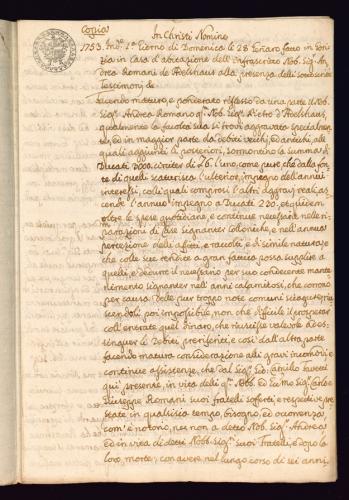 Copia
In Christi Nomine
1753. Ind.e 1.a Giorno di Domenica li 28 Genaro fatto in Gori-
zia in casa d'abitazione dell'Infrascritto Nob. Sig.r An-
drea Romani de Adelshaus alla presenza delli sottoscritti
Testimonj &c.
Secondo maturo, e ponderato riflesso da una parte il Nob.
Sig.r Andrea Romano q.m Nob. Sig.r Pietro d'Adelshaus,
qualmente la facoltà sua si trovi aggravata specialmen-
te, ed in maggior parte da debiti vecchi, ed antichi, alli
quali aggiunti li posteriori, sormontino la summa di
Ducati 4000 circiter di £ 6. l'uno, come pure, che dalla fon-
te di quelli scaturisca l'ulteriore impegno dell'annui
interessi, colli quali compresi l'altri aggravj reali, as-
cende l'annuo impegno a Ducati 220., et quidem
oltre le spese quotidiane, e continue necessarie nelle ri-
parazioni di case signanter Collonìche, e nell'annua
percezione delli affitti, e raccolti, e di simile natura, &c
che colle sue rendite a gran fatica possa supplire a
quelli, e dedurre il necessario per suo condecente mante-
nimento signanter nell'anni calamitosi, che corrono
per causa delle pur troppo note comuni sciagure, riu-
scendoli poi impossibile, non che difficile il prosperar
coll'entrate quel dinaro, che riuscisse valevole ad es-
tinguer li Debiti prensente, e così dall'altra parte
facendo matura considerazione alli gravi incomodi, e
continue assistenze, che dal Sig.r Gio: Camillo Favetti
qui presente, in vita delli q.m Nobb. ed Ecc.mo Sig.ri Carlo e
Giuseppe Romani suoi fratelli sofferti, e respettive pre-
state in qualsisia tempo, bisogno, ed occorrenza,
com'è notorio, per non a detto Nob. Sig.r Andrea,
ed in vita di detti Nobb. Sig.ri suoi Fratelli, e dopo la
loro morte, con avere nel lungo corso di sei anni,